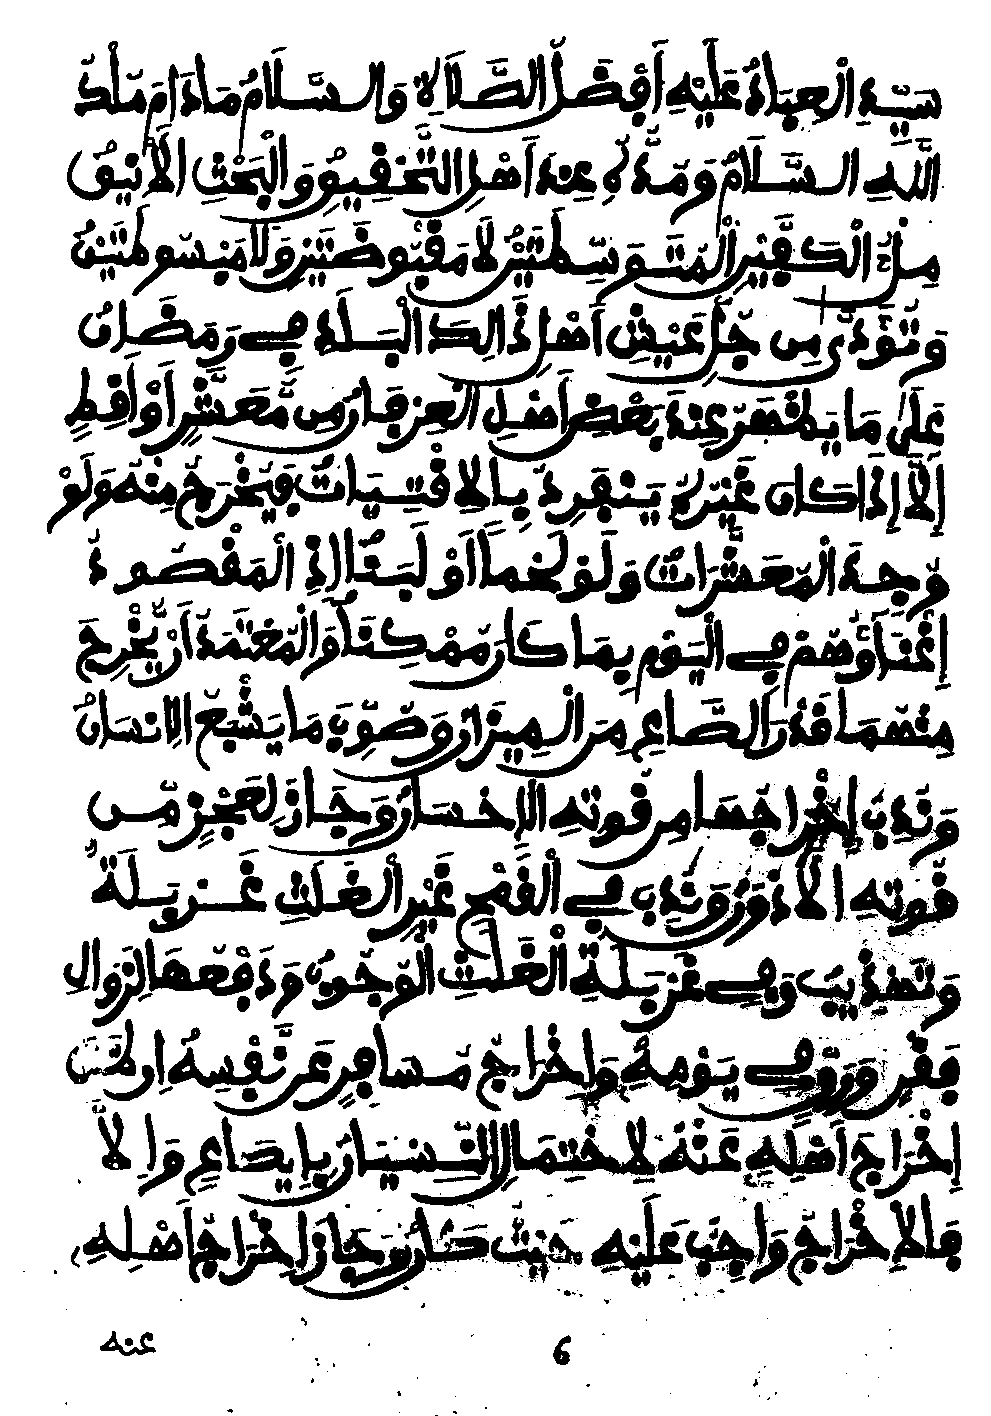 سَيِّدِ الْعِبَادِ عَلَيْهِ أَفْضَلُ الصَّلَاةِ وَالسَّلَامُ مَادَامَ مُلْكُ
اللَّهِ السَّلَامُ وَمُدُّهُ عِنْدَ أَهْلِ التَّحْقِيقِ وَالْبَحْثِ الْأَنِيقِ
مِلْءُ الْكَفَّيْنِ الْمُتَوَسِّطَتَيْنِ لَا مَقْبُوضَتَيْنِ وَلَا مَبْسُوطَتَيْنِ
وَتُؤَدَّى مِن جُلِّ عَيْشِ أَهْلِ ذَالِكَ الْبَلَدِ فِي رَمَضَانَ
عَلَى مَا يَظْهَرُ عِنْدَ بَعْضِ أَهْلِ الْعِرْفَانِ مِن مُّعَشَّرٍ أَوْ أَقِطٍ
إِلَّا إِذَا كَانَ غَيْرُهُ يَنْفَرِدُ بِالِاقْتِيَاتِ فَيُخْرَجُ مِنْهُ وَلَوْ
وُجِدَ الْمُعَشَّرَاتُ وَلَوْ لَحْمًا أَوْ لَبَنًا إِذِ الْمَقْصُودُ
إِغْنَاؤُهُمْ فِي الْيَوْمِ بِمَا كَانَ مُمْكِنًا وَالْمُعْتَمَدُ أَنْ يُّخْرِجَ
مِنْهُمَا قَدْرَ الصَّاعِ مِنَ الْمِيزَانِ وَصُوِّبَ مَا يُشْبِعُ الِانْسَانَ
وَنُدِبَ إِخْرَاجُهَا مِن قُوتِهِ الْإِحْسَانُ وَجَازَ لِعَجْزٍ مِّن
قُوتِهِ الْأَدْوَنُ وَنُدِبَ فِي الْقَمْحِ غَيْرِ الْغَلِثِ غَرْبَلَةٌ
وَتَهْذِيبٌ وَفِي غَرْبَلَةِ الْغَلِثِ الْوُجُوبُ وَدَفْعُهَا لِزَوَالِ
فَقْرٍ وَرِقٍّ فِي يَوْمِهِ وَإِخْرَاجُ مُسَافِرٍ عَن نَّفْسِهِ
إِخْرَاجَ أَهْلِهِ عَنْهُ لِاحْتِمَالِ النِّسْيَانِ بِإِيصَاعٍ وَإِلَّا
فَالْإِخْرَاجُ وَاجِبٌ عَلَيْهِ حَيْثُ كَانَ وَجَازَ إِخْرَاجُ أَهْلِهِ
عنه
6